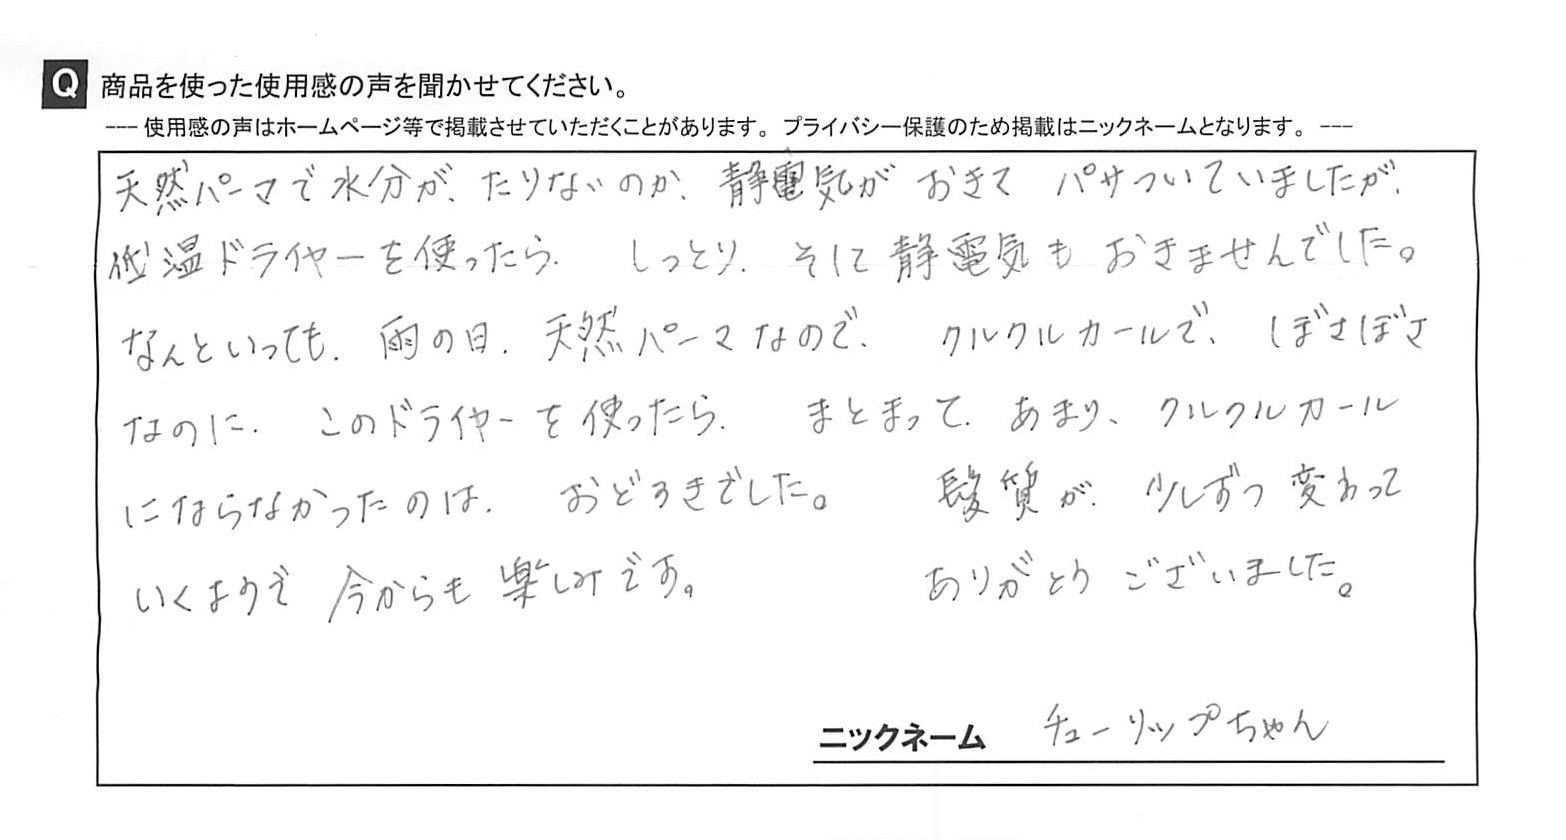 Q 商品を使った使用感の声を聞かせてください。
--- 使用感の声はホームページ等で掲載させていただくことがあります。プライバシー保護のため掲載はニックネームとなります。 ---
天然パーマで水分が、たりないのか、静電気が おきて パサついていましたが、
低温ドライヤーを使ったら、しっとり、そして静電気も おきませんでした。
なんといっても、雨の日、天然パーマなので、クルクルカールで、ぼさぼさ
なのに、このドライヤーを使ったら、まとまって、あまり、クルクルカール
にならなかったのは、おどろきでした。 髪質が、少しずつ 変わって
いくようで 今からも 楽しみです。 ありがとう ございました。
ニックネーム チューリップちゃん